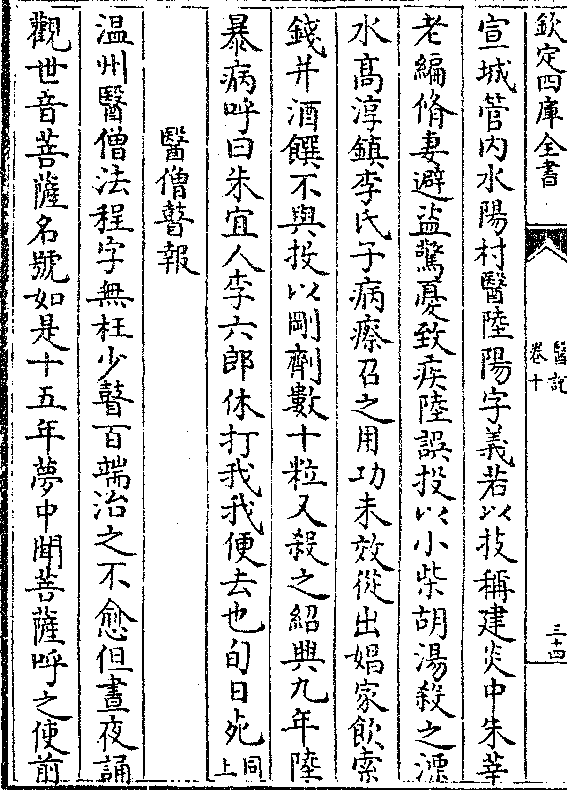 欽定四庫全書
醫說
卷十
三十四
宣城管内水陽村醫陸陽字義若以技稱建炎中朱莘
老編脩妻避盜驚憂致疾陸誤投以小柴胡湯殺之溧
水髙淳鎮李氏子病瘵召之用功未效從出娼家飲索
錢并酒饌不與投以剛劑數十粒又殺之紹興九年陸
暴病呼曰朱宜人李六郎休打我我便去也旬日死同上
醫僧瞽報
温州醫僧法程字無枉少瞽百端治之不愈但晝夜誦
觀世音菩薩名號如是十五年夢中聞菩薩呼之使前